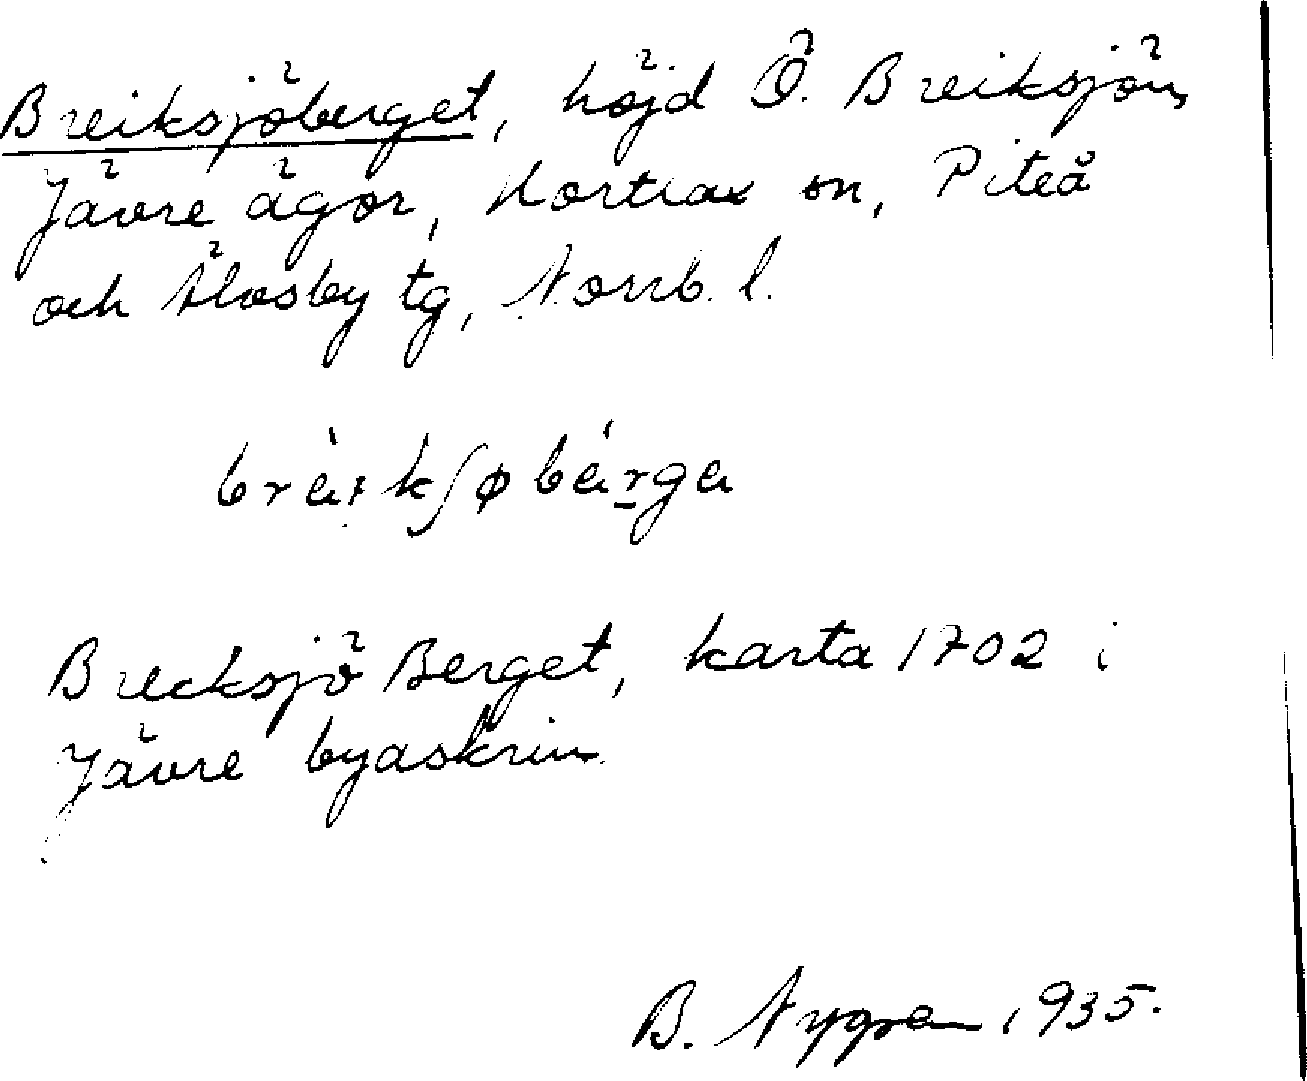 Breiksjöberget, höjd Ö. Breiksjön,
Jävre ägor, Hortlax sn, Piteå
och Älvsby tg, Norrb. l.
Brecksjö Berget, karta 1702 i
Jävre byaskrin
B. Nygren 1935.